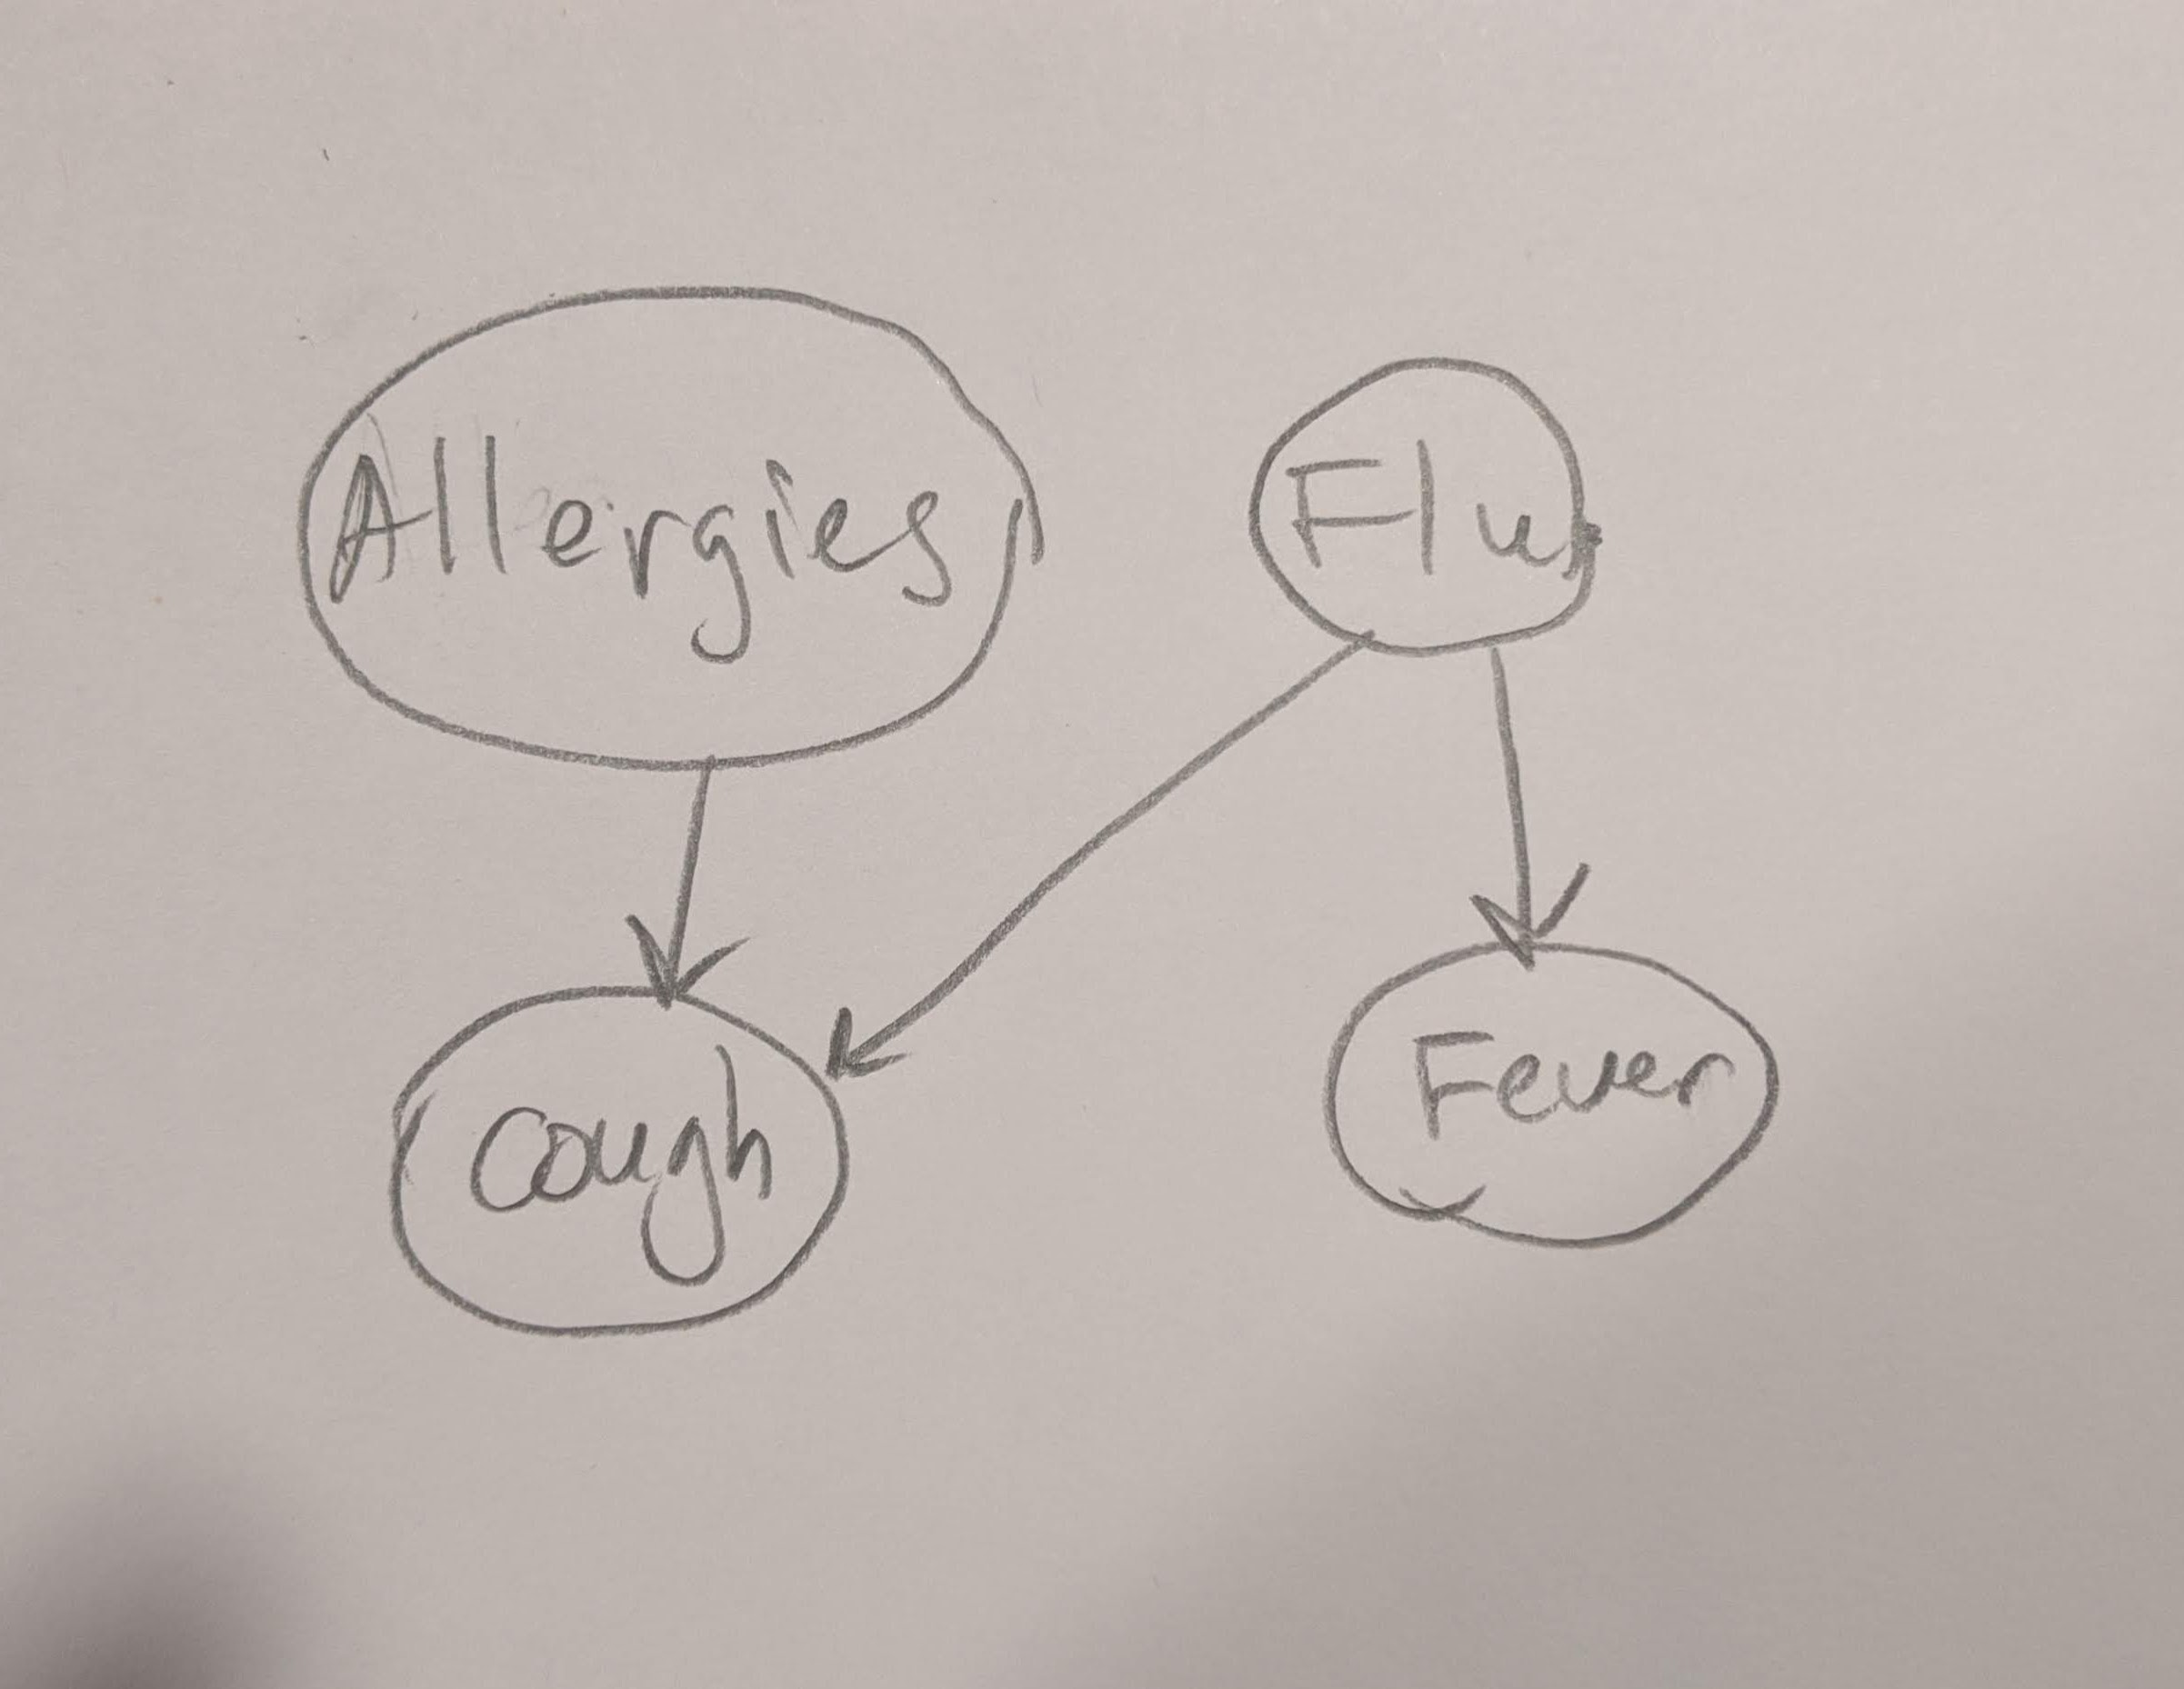 Allergies
Flu
Cough
Fever